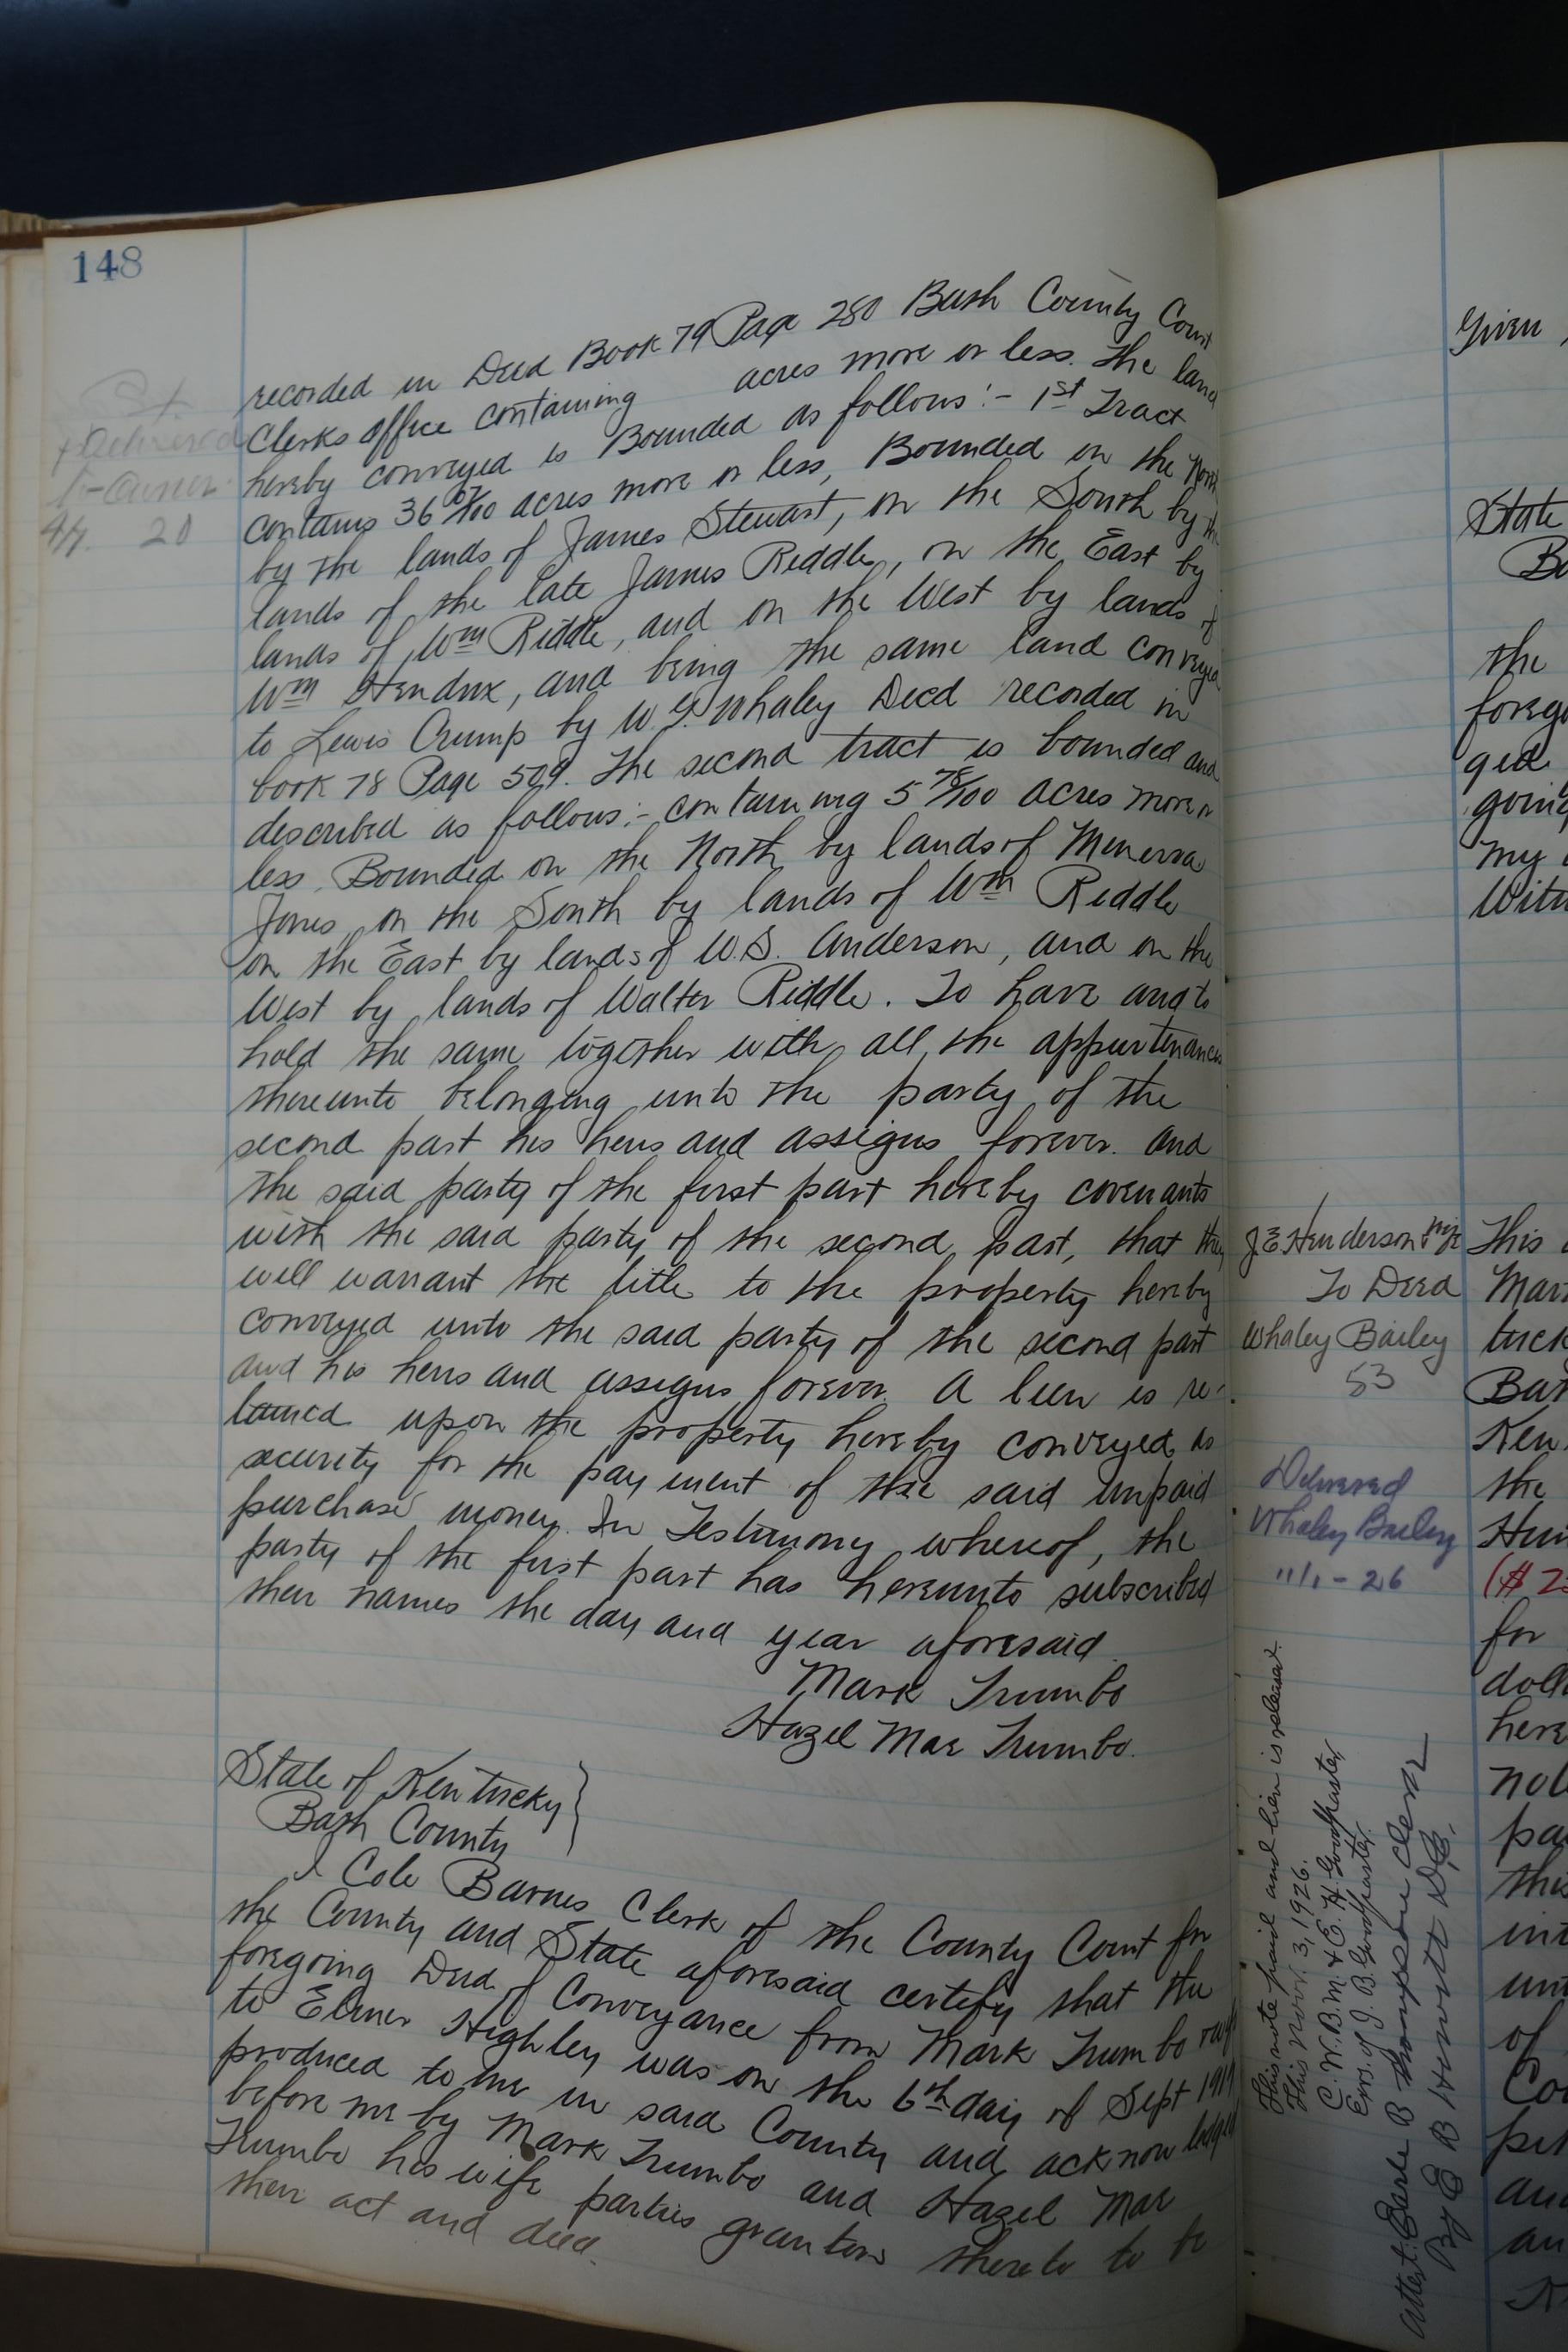 148
recorded in Deed Book 79 Page 280 Bath County Court
Clerks office containing acres more or less. The land
hereby conveyed is Bounded as follows:- 1st Tract
contains 36 67/100 acres more or less, Bounded on the North
by the lands of James Stewart, on the South by the
lands of the late James Riddle, on the East by
lands of Wm Riddle, and on the West by lands of
Wm Hendrix, and being the same land conveyed
to Lewis Crump by W. G. Whaley Deed recorded in
book 78 Page 509. The second tract is bounded and
described as follows:- containing 5 78/100 acres more or
less. Bounded on the North by lands of Minerva
Jones, on the South by lands of Wm Riddle
on the East by lands of W.S. Anderson, and on the
West by lands of Walter Riddle. To have and to
hold the same together with all the appurtenances
thereunto belonging unto the party of the
second part his heirs and assigns forever. And
the said party of the first part hereby covenants
with the said party of the second part, that they
will warrant the title to the property hereby
conveyed unto the said party of the second part
and his heirs and assigns forever. A lien is re-
tained upon the property hereby conveyed as
security for the payment of the said unpaid
purchase money. In Testimony whereof, the
party of the first part has hereunto subscribed
their names the day and year aforesaid.
Mark Trumbo
Hazel Mae Trumbo.
State of Kentucky
Bath County
I Cole Barnes Clerk of the County Court for
the County and State aforesaid certify that the
foregoing Deed of Conveyance from Mark Trumbo
to Elmer Highley was on the 6th day of Sept 1919
produced to me in said County and acknowledged
before me by Mark Trumbo and Hazel Mae
Trumbo his wife parties grantors thereto to be
their act and deed.
Delivered
20
Given
State
the
My
J E Henderson & wife
To Deed
Whaley Bailey
53
Delivered
Whaley Bailey
11/1-26
This note paid and lien is released.
This Nov. 3, 1926.
C.W.B.M. & E. H. Goodpaster
Exrs. of J. B. Goodpaster.
Attest: Earle B Thompson Clerk
By E B Hewitt D.C.
This
Ken.
the
($2
for
of